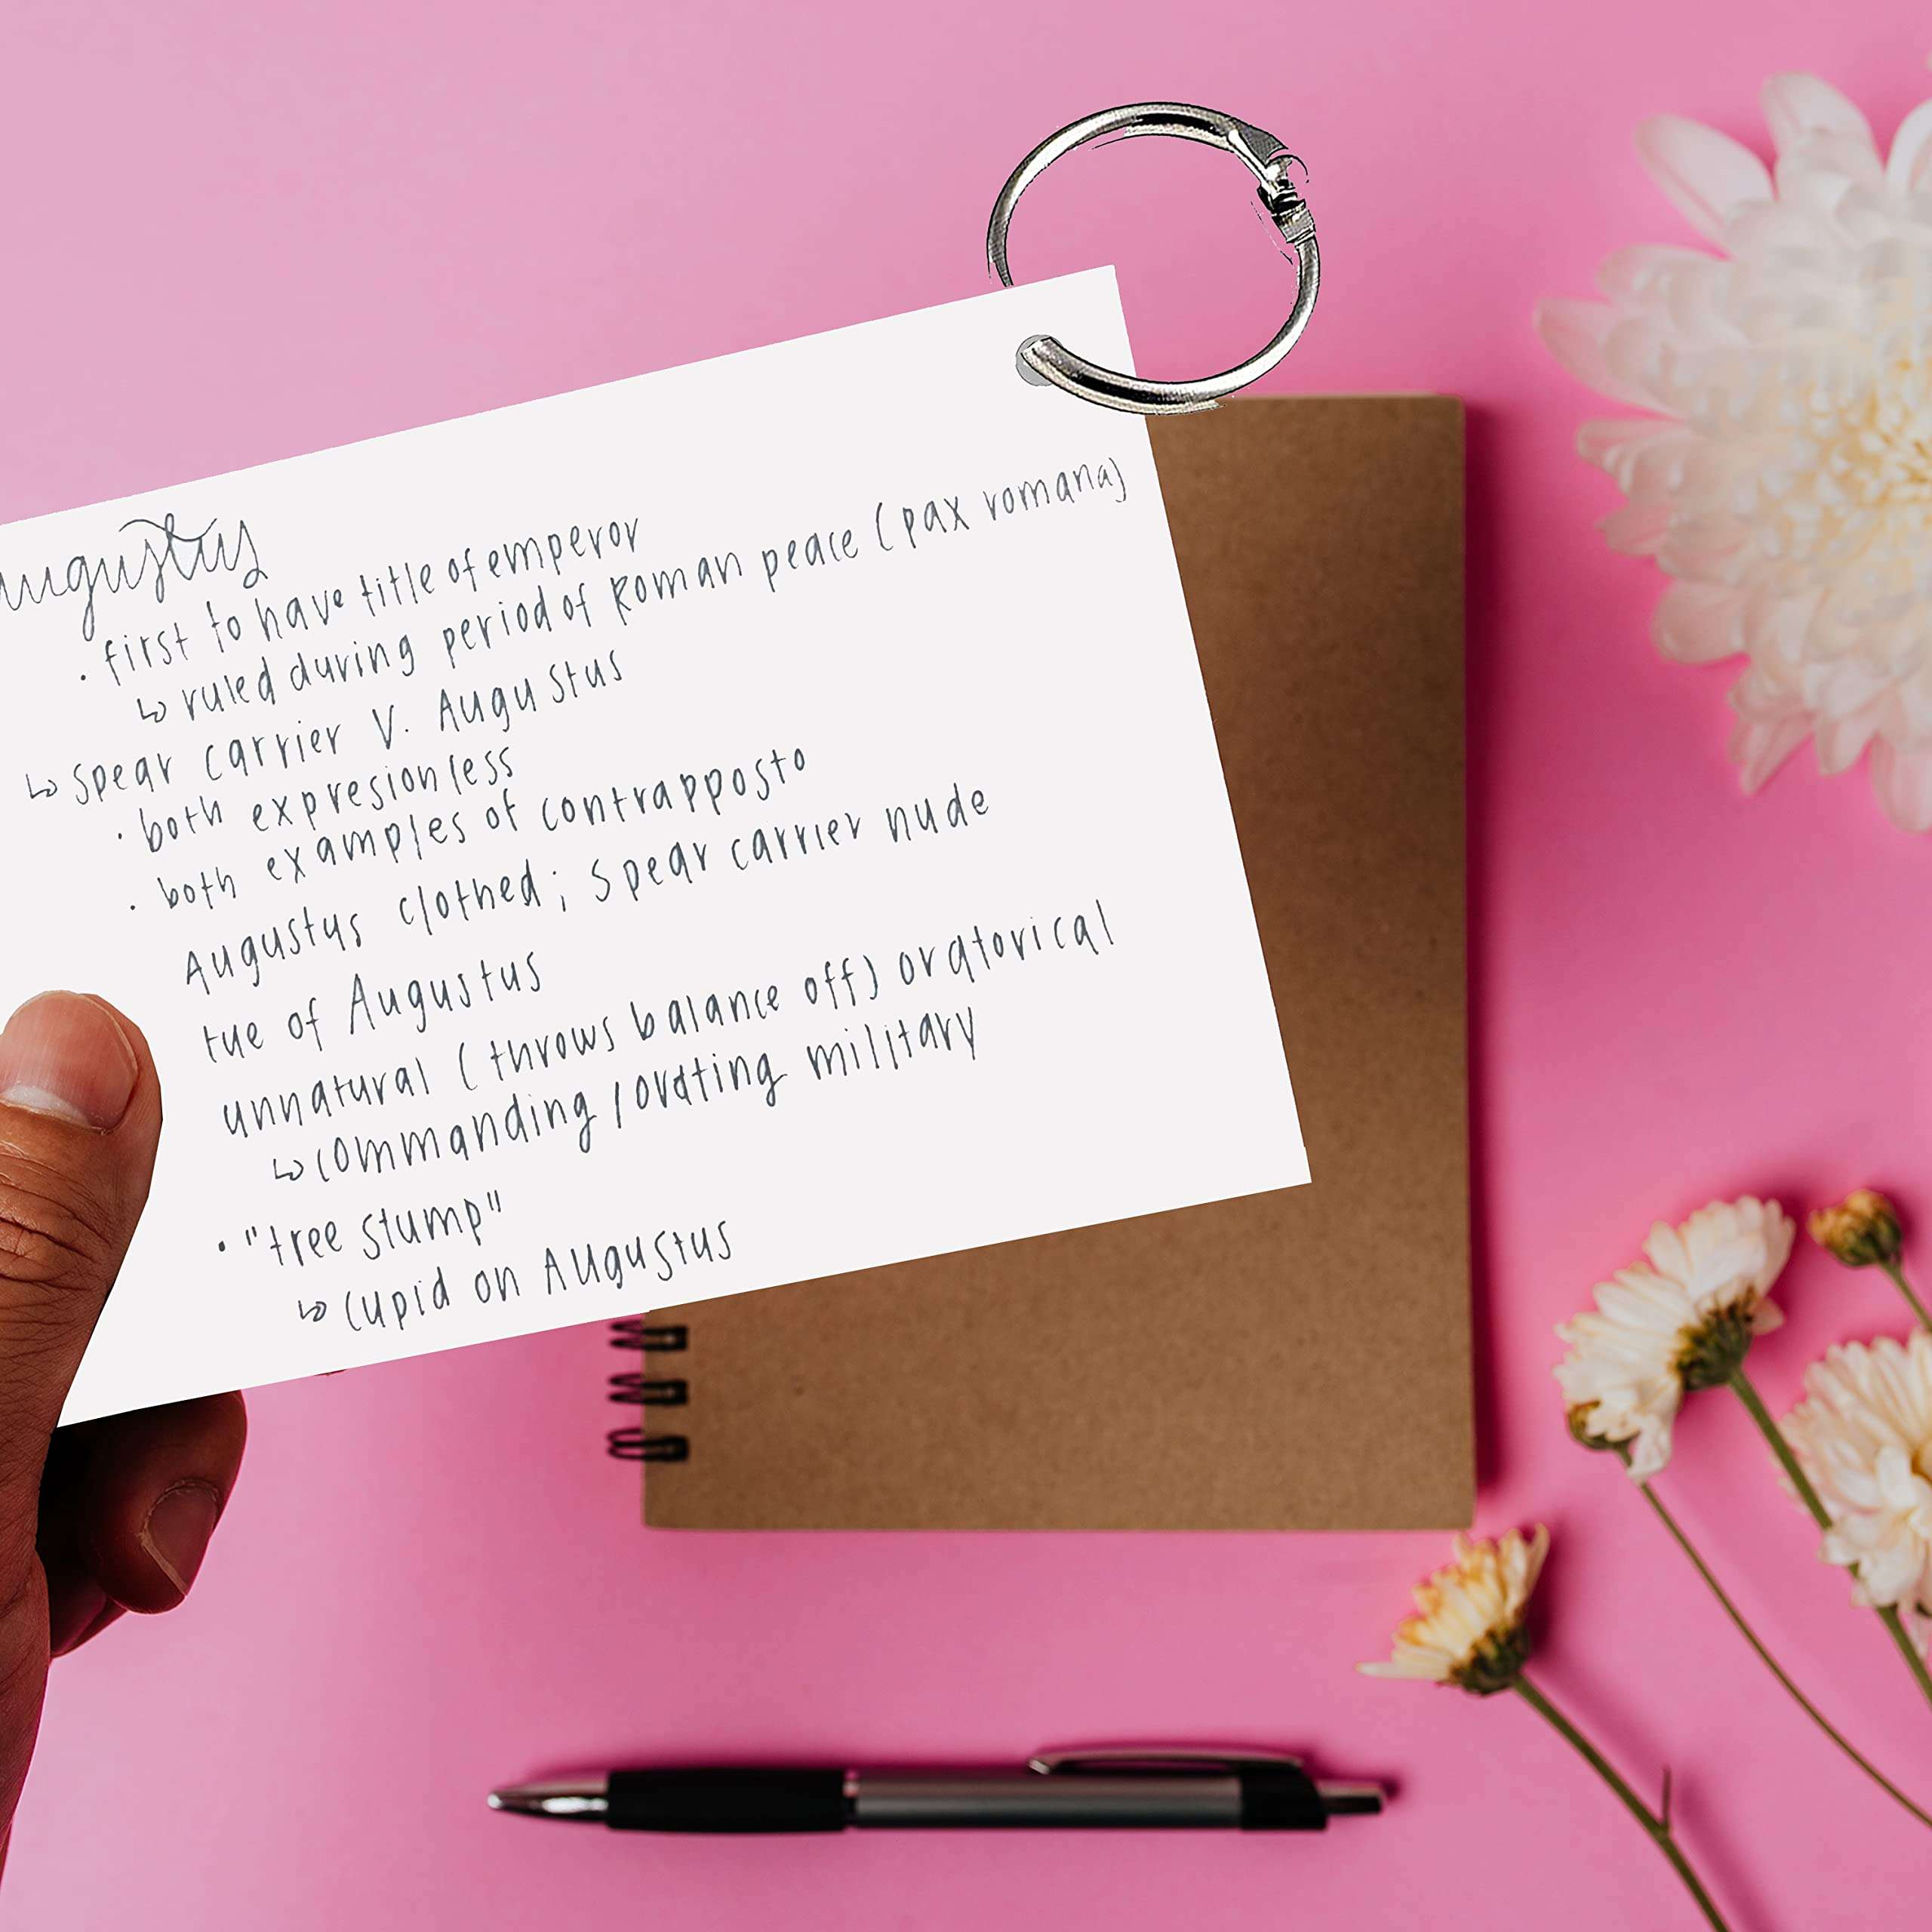 augustus
· first to have title of emperor
↳ ruled during period of Roman peace (pax romana)
↳ spear carrier v. Augustus
· both expresionless
· both examples of contrapposto
Augustus clothed; spear carrier nude
tue of Augustus
unnatural (throws balance off) oratorical
↳ commanding/orating military
· "tree stump"
↳ cupid on Augustus